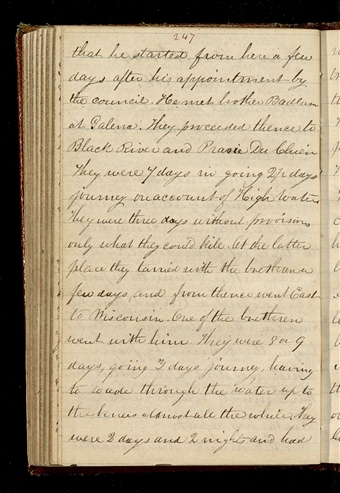 247
that he started from here a few
days after his appointment by
the council. He met brother Badlam
at Galena. They proceeded thence to
Black River and Prarie Du Chien
They were 7 days in going 2½ days
journey on account of High Water
They were three days without provisions
only what they could kill. At the latter
place they tarried with the brethren a
few days, and from thence went East
to Wisconsin. One of the brethren
went with him. They were 8 or 9
days, going 3 days journey, having
to wade through the water up to
the knees almost all the while. They
were 2 days and 2 nights and had